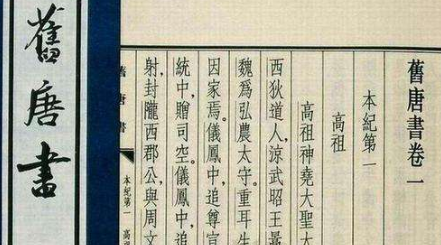 舊唐書
舊唐書卷一
本紀第一
高祖
高祖神堯大聖大
西狄道人，涼武昭王暠
魏爲弘農太守。重耳生
因家焉。儀鳳中，追尊宣
統中，贈司空。儀鳳中，追
射，封隴西郡公，與周文
舊唐書
本紀第一 高祖